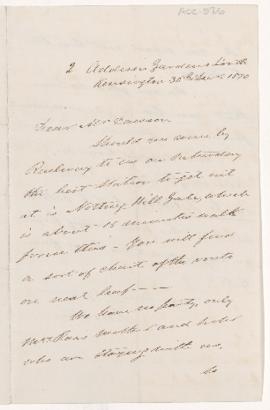 2 Addison Gardens South
Kensington 30th June 1870
Dear Mr Dawson
Should you come by
Railway to us on Saturday
the best Station to get out
at is Notting Hill Gate, which
is about 15 minutes walk
from this - You will find
a sort of chart of the route
on next leaf - -
We have no party, only
Mrs mother and sister
who are staying with us.
So